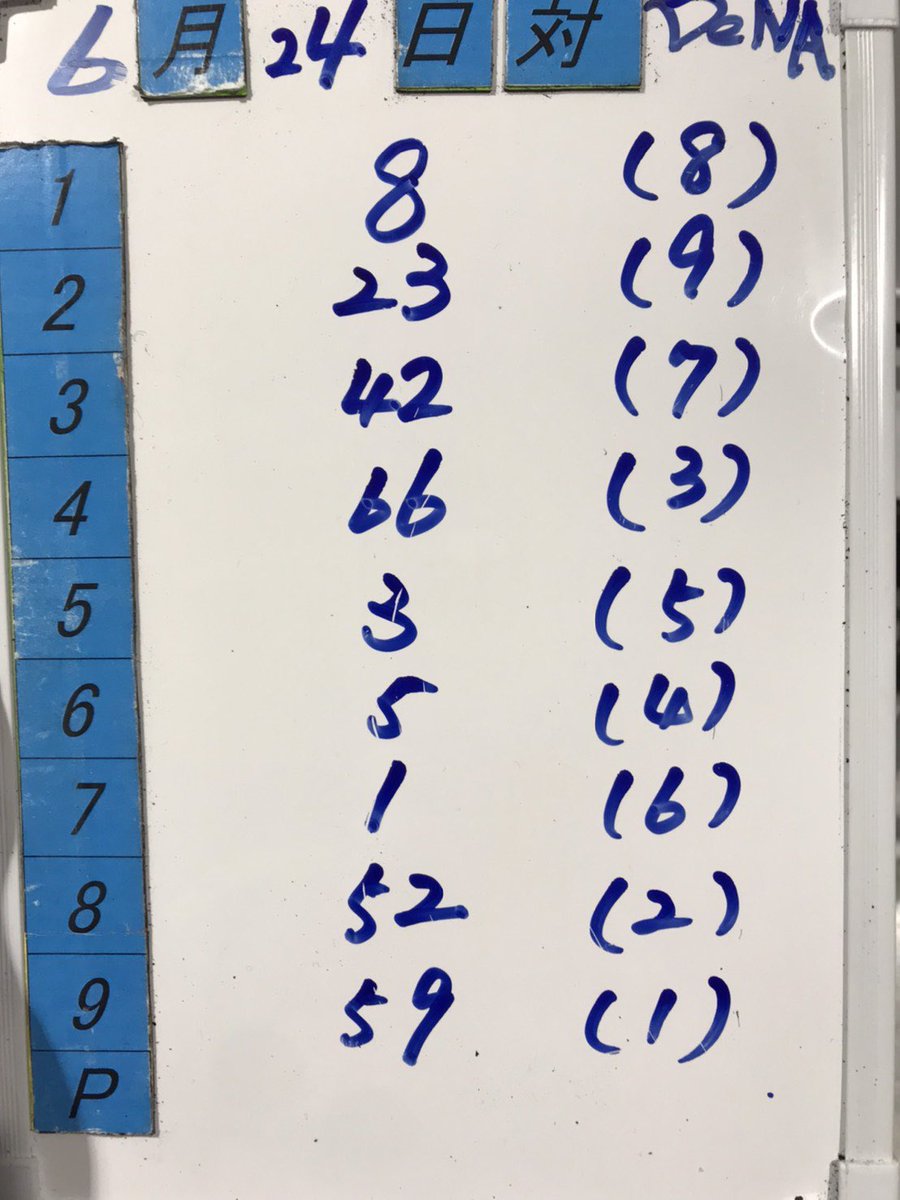 6月24日対DeNA
1 8 (8)
2 23 (9)
3 42 (7)
4 66 (3)
5 3 (5)
6 5 (4)
7 1 (6)
8 52 (2)
9 59 (1)
P